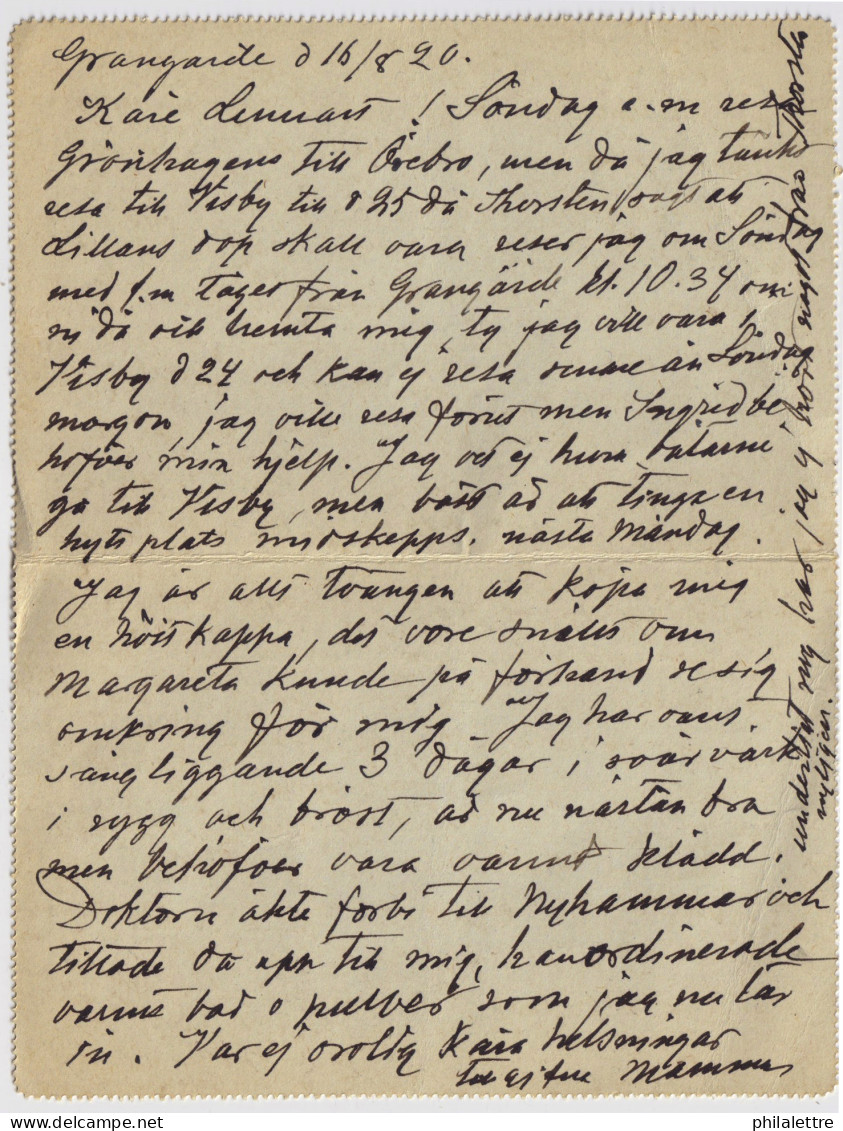 Grangärde d 16/8 20.
Käre Lennart! Söndag e.m resa
Grönhagens till Örebro, men då jag tänkt
resa till Visby till d 25 då Thorsten sagt att
Lillans dop skall vara reser jag om Söndag
med f.m tåget från Grangärde kl. 10.34 om
ni då vill hemta mig, ty jag vill vara i
Visby d 24 och kan ej resa senare än Söndag
morgon jag ville resa förut men Ingrid be
höfver min hjelp. Jag vet ej huru båtarne
gå till Visby, men bäst är att tinga en
hytt plats midskepps. nästa Måndag.
Jag är allt tvungen att köpa mig
en höstkappa, det vore snällt om
Margareta kunde på förhand se sig
omkring för mig. Jag har varit
sängliggande 3 dagar i svår värk
i rygg och bröst, är nu nästan bra
men behöfver vara varmt klädd.
Doktorn åkte förbi till Nyhammar och
tittade då upp till mig, han ordinerade
varmt bad o pulver som jag nu tar
in. Var ej orolig Kära helsningar
till Mamma
har jag ej hört något från Thorsten
nyligen.
philalettre